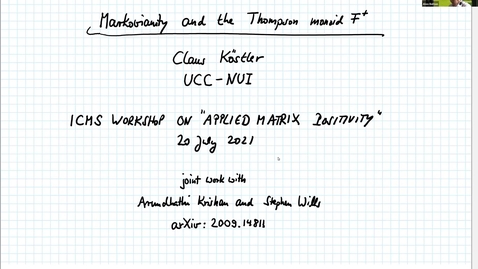 Markovianity and the Thompson monoid F⁺
Claus Köstler
UCC-NUI
ICMS WORKSHOP ON "APPLIED MATRIX POSITIVITY"
20 July 2021
joint work with
Arundhathi Krishnan and Stephen Wills
arXiv: 2009.14811